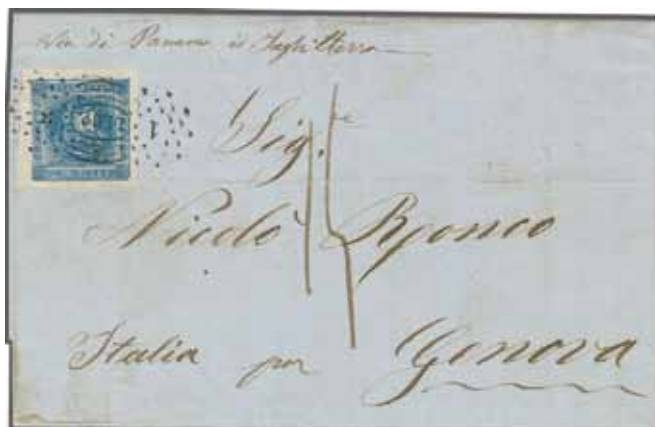 Via di Panama ed Inghilterra
Sig.
Nicolò
Italia per Genova